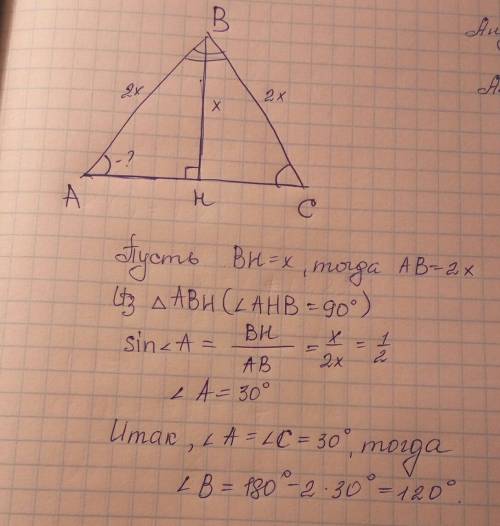 B
2x
2x
x
-?
A
H
C
Пусть BH=x, тогда AB=2x
Из △ABH (∠AHB=90°)
sin∠A = BH/AB = x/2x = 1/2
∠A=30°
Итак, ∠A=∠C=30°, тогда
∠B=180°-2·30°=120°.